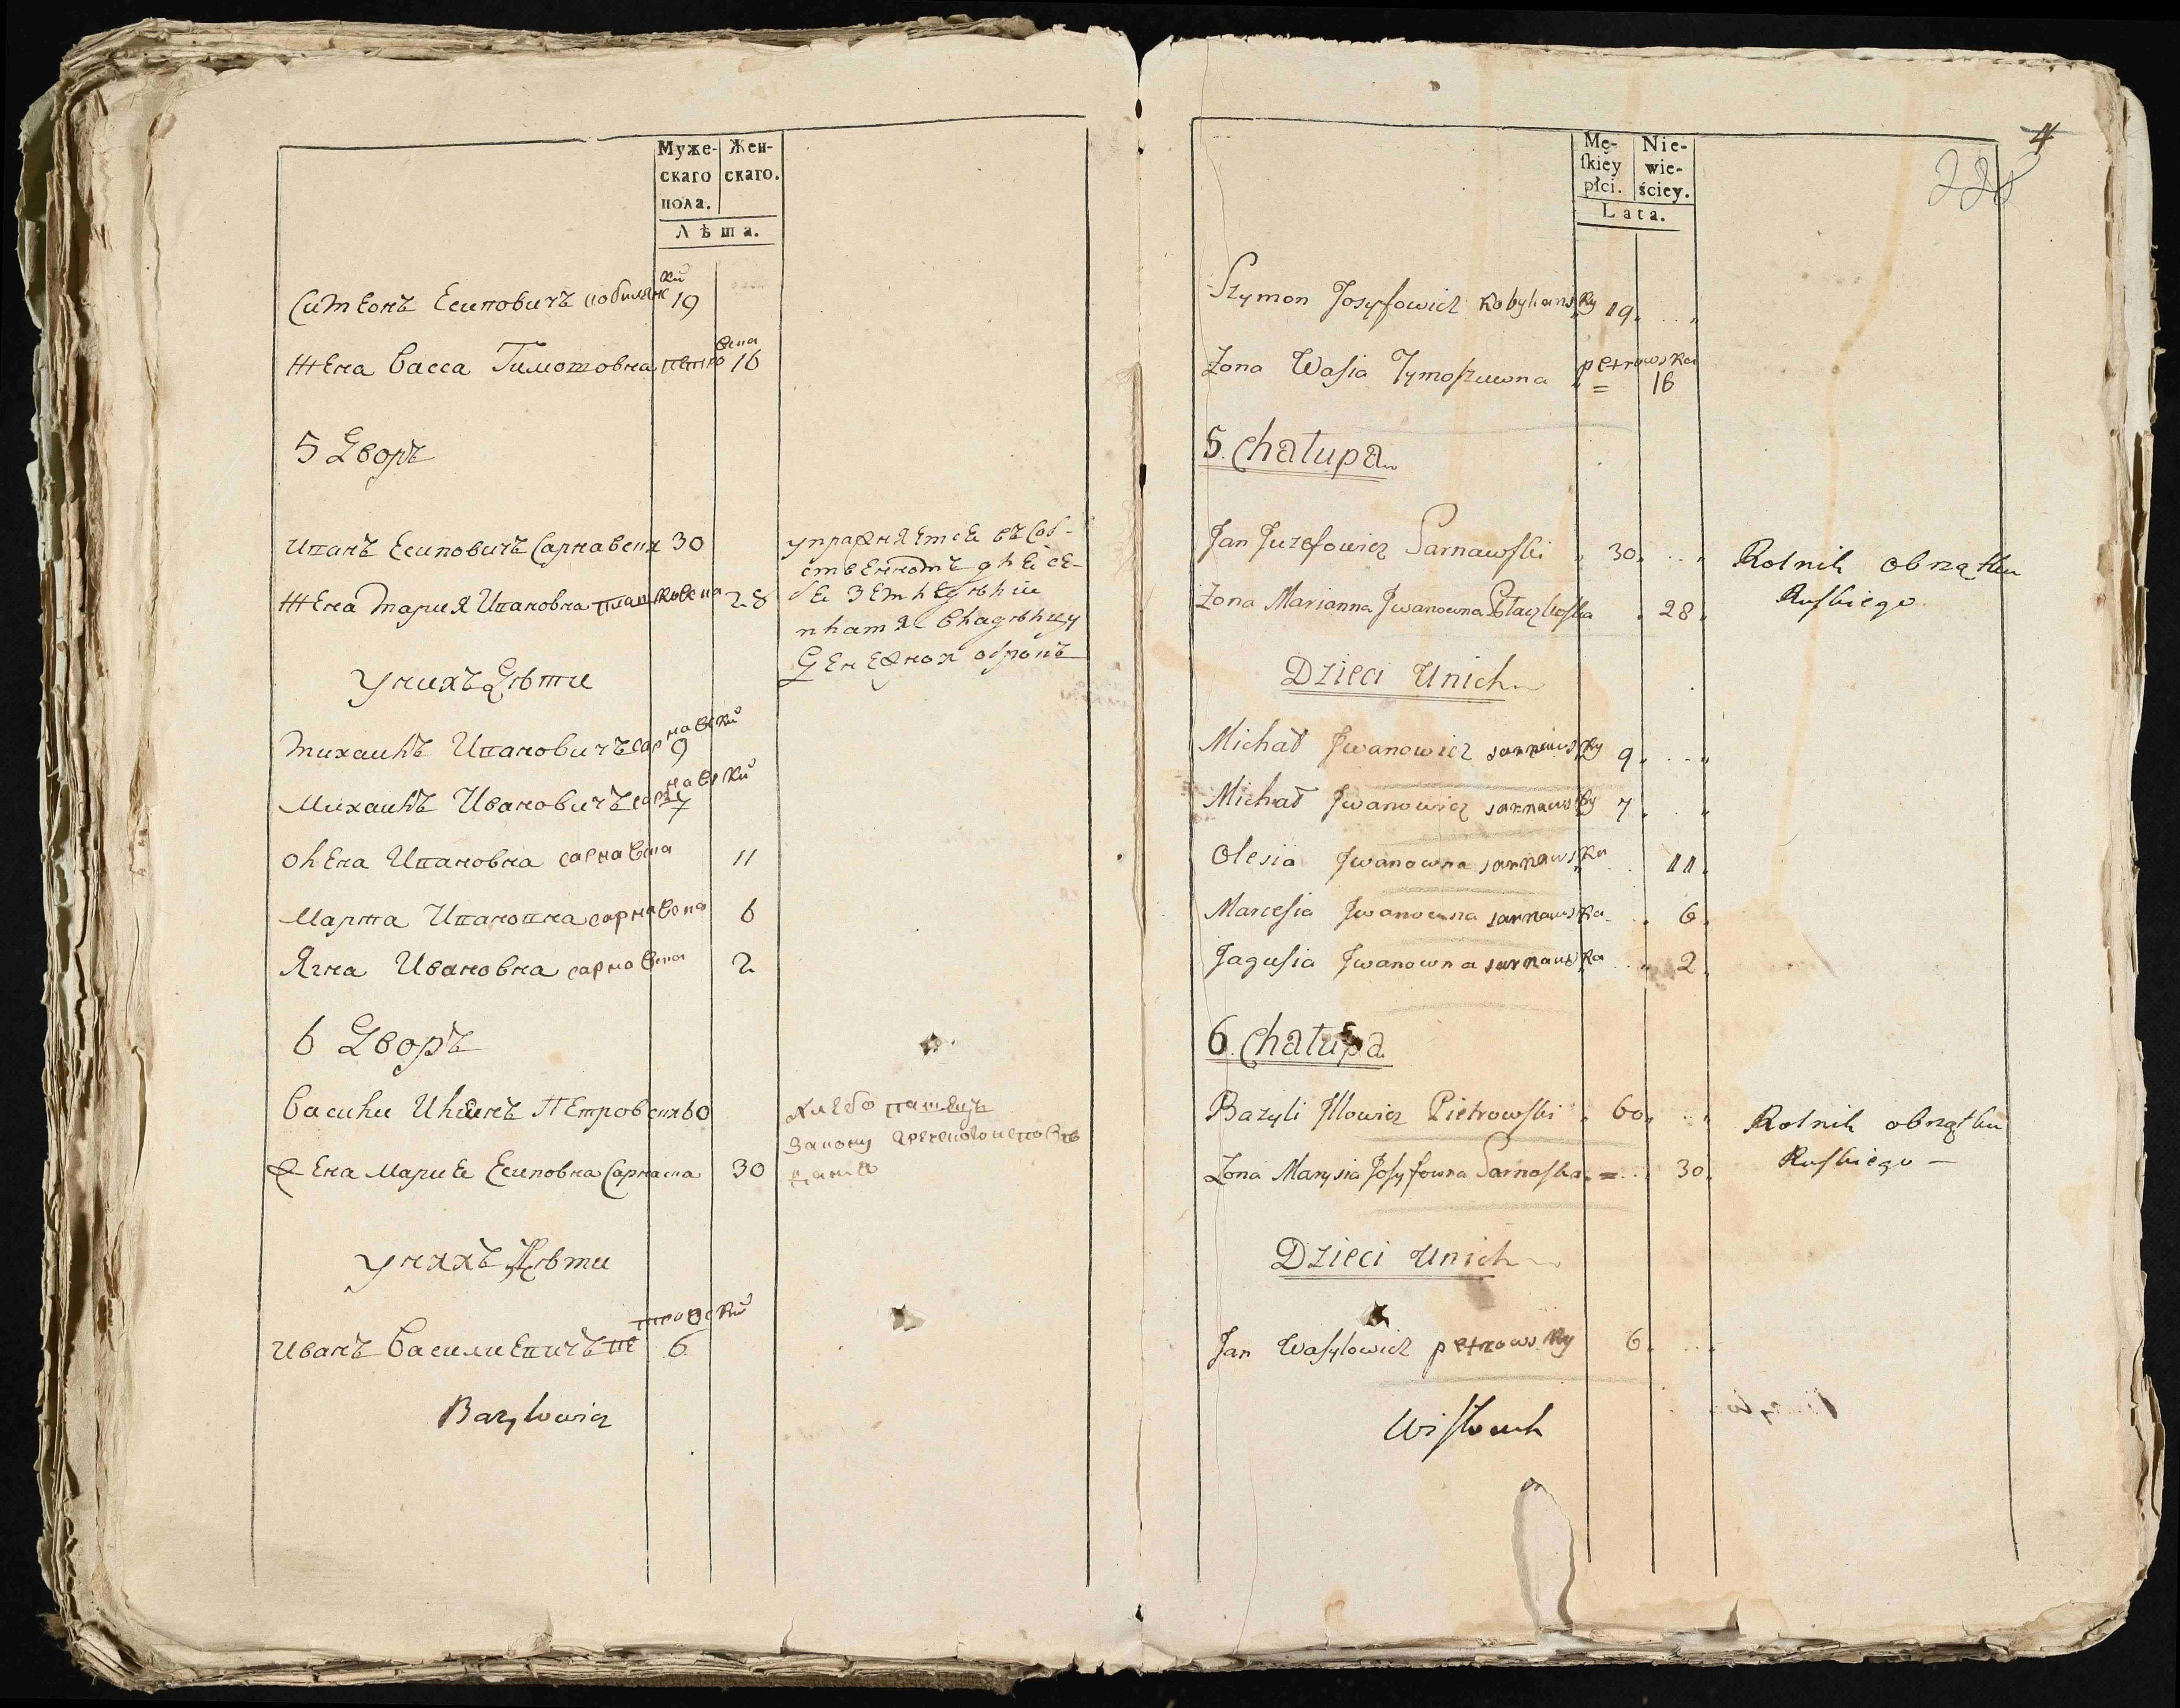 Муже-
скаго
пола.
Жен-
скаго.
Лѣта.
Симеонъ Есиповичъ кобилянский 19
Жена Васса Тимотовна петровска 16
5 Дворъ
Иванъ Есиповичъ Сарнавски 30
Жена Мария Ивановна плачковска 28
упражняется въ соб-
ственномъ для се-
бя земледѣлии
платя владѣлцу
Денежной оброкъ
У них Дѣти
Михаилъ Ивановичъ сарнавский 9
Михаилъ Ивановичъ сарнавский 7
олена Ивановна сарнавска 11
Марта Ивановна сарнавска 6
Ягна Ивановна сарнавска 2
6 Дворъ
Васили Петровски 60
хлебопашецъ
Закону греческого исповѣ
дания
Жена Марие Есиповна Сарнаска 30
У нихъ Дѣти
Иванъ Василиевичъ петровский 6
Bazylowicz
4
228
Mę-
ſkiey
płci.
Nie-
wie-
ściey.
Lata.
Szymon Josyfowicz Kobylansky 19
Zona Wasia Tymoszuwna petrowska = 16
5. Chałupa
Jan Juzefowicz Sarnawski 30
Rolnik obrządku
Ruskiego
Zona Marianna Jwanowna Płaczkoska 28
Dzieci Unich
Michał Jwanowicz sarnawsky 9
Michał Jwanowicz sarnawsky 7
Olesia Jwanowna sarnawska 11
Marcesia Jwanowna sarnawska 6
Jagusia Jwanowna sarnawska 2
6. Chałupa
Bazyli Jllowicz Pietrowski 60
Rolnik obrządku
Ruskiego
Zona Marysia Josyfowna Sarnaska = 30
Dzieci Unich
Jan Wasylowicz petrowsky 6